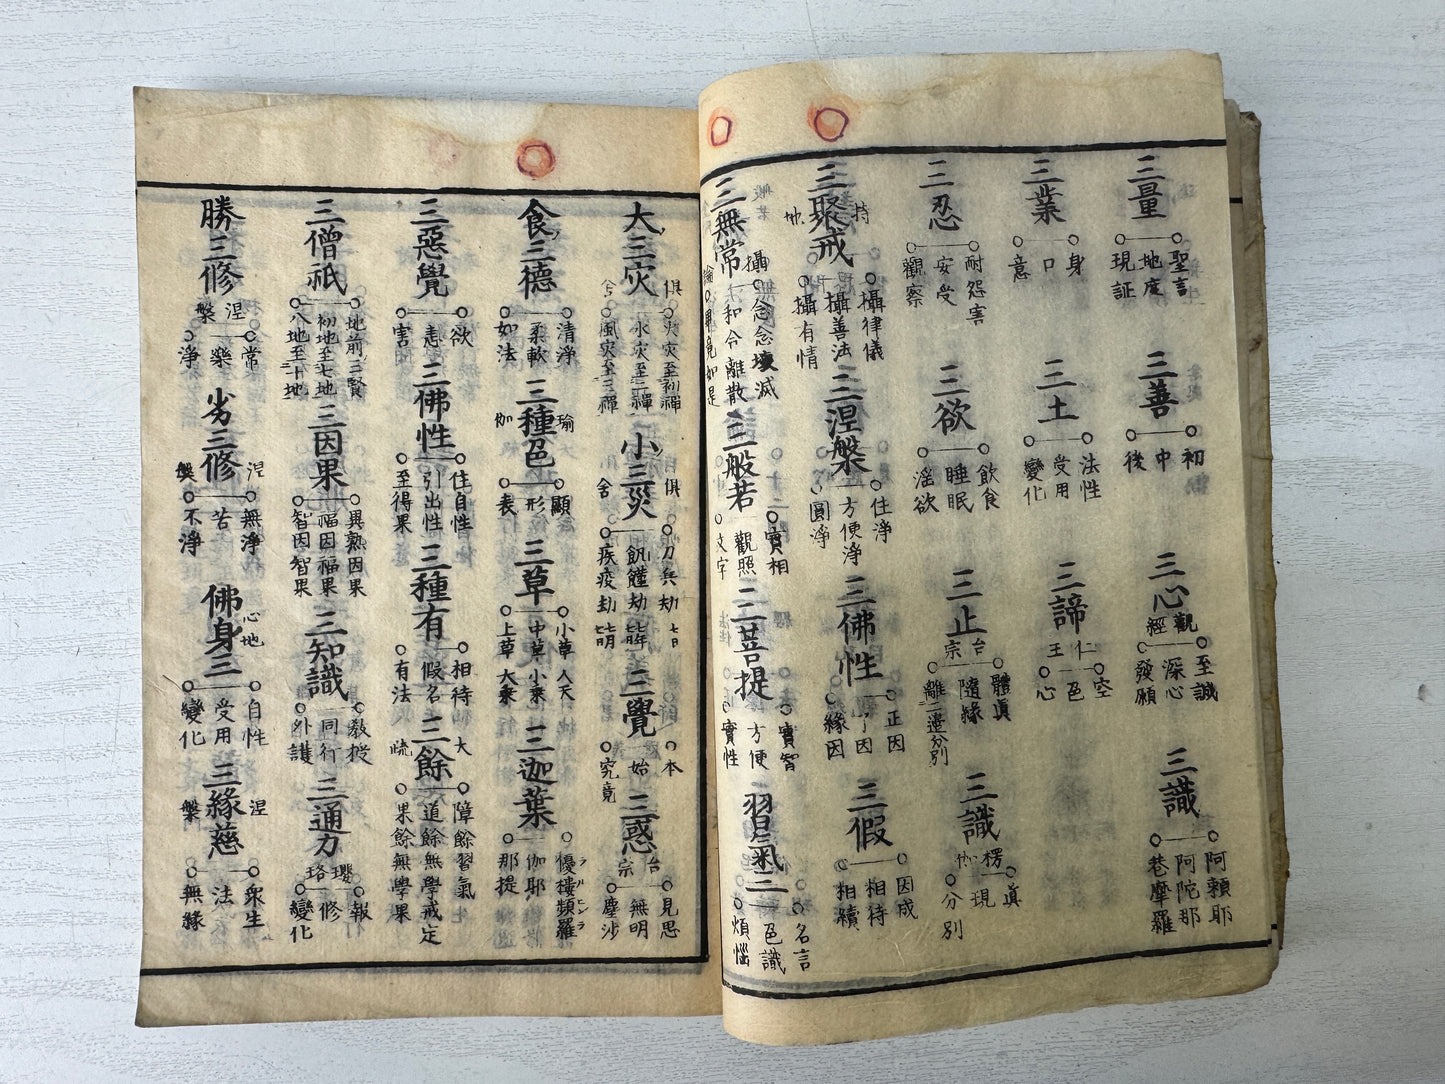 三量 聖言 地度 現証
三善 初 中 後
三心 觀經 至誠 深心 發願
三識 阿頼耶 阿陀那 菴摩羅
三業 身 口 意
三土 法性 受用 變化
三諦 仁王 空 色 心
三忍 耐怨害 安受 觀察
三欲 飲食 睡眠 淫欲
三止 台宗 體眞 隨緣 離二邊分別
三識 楞伽 眞 現 分別
三聚戒 地持 攝律儀 攝善法 攝有情
三涅槃 住淨 方便淨 圓淨
三佛性 正因 了因 緣因
三假 因成 相待 相續
三無常 念念壞滅 和合離散 畢竟如是
三般若 實相 觀照 文字
三菩提 實智 方便 實性
習氣三 名言 色識 煩惱
大三灾 俱舍 火灾至初禪 水灾至二禪 風灾至三禪
小三災 俱舍 刀兵劫 七日 飢饉劫 疾疫劫
三覺 本 始 究竟
三惑 台宗 見思 無明 塵沙
食三德 清淨 柔軟 如法
三種色 瑜伽 顯 形 表
三草 小草 人天 中草 小乘 上草 大乘
三迦葉 優樓頻羅 伽耶 那提
三惡覺 欲 恚 害
三佛性 住自性 引出性 至得果
三種有 相待 假名 有法
三餘 大疏 障餘習氣 道餘無學戒定 果餘無學果
三僧祇 地前三賢 初地至七地 八地至十地
三因果 異熟因果 福因福果 智因智果
三知識 教授 同行 外護
三通力 瓔珞 報 修 變化
勝三修 涅槃 常 樂 淨
劣三修 涅槃 無淨 苦 不淨
佛身三 心地 自性 受用 變化
三緣慈 涅槃 衆生 法 無緣